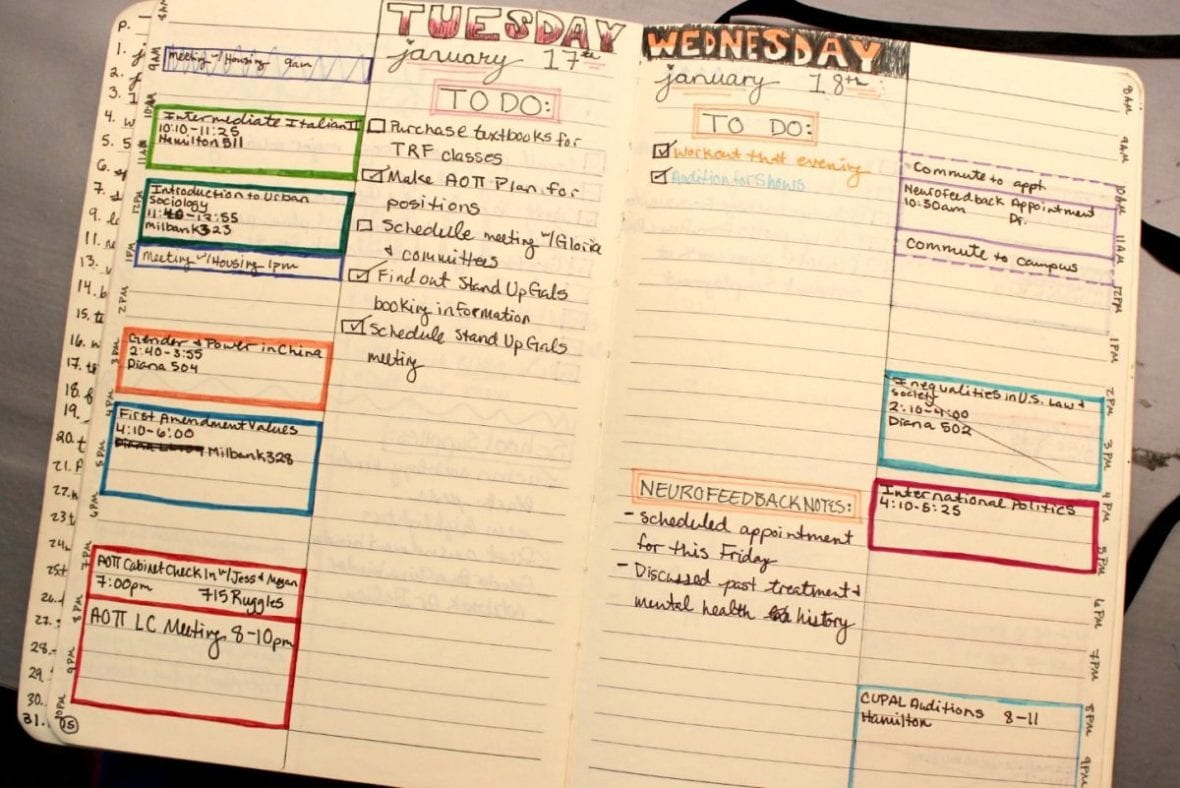 P.
1.
2.
3.
4.
5.
6.
7.
9.
11.
13.
14.
15.
16.
17.
18.
19.
20.
21.
22.
23
24.
25.
26.
27.
28.
29.
30.
31.
15
8AM
9AM
10AM
11AM
12PM
1PM
2PM
3PM
4PM
5PM
6PM
7PM
8PM
9PM
10PM
meeting w/Housing 9am
Intermediate Italian II
10:10-11:25
Hamilton 511
Introduction to Urban
Sociology
11:40-12:55
milbank323
meeting w/Housing 1pm
Gender & Power in China
2:40-3:55
Diana 504
First Amendment Values
4:10-6:00
Milbank328
AOΠ Cabinet Check In w/Jess & Megan
7:00pm 715 Ruggles
AOΠ LC Meeting 8-10pm
TUESDAY
january 17th
TO DO:
Purchase textbooks for
TRF classes
Make AOΠ Plan for
positions
Schedule meeting w/Gloria
& committees
Find out Stand Up Gals
booking information
Schedule Stand Up Gals
meeting
WEDNESDAY
january 18th
TO DO:
Workout that evening
Audition for Shows
NEUROFEEDBACK NOTES:
- Scheduled appointment
for this Friday
- Discussed past treatment &
mental health history
Commute to appt.
Neurofeedback Appointment
10:30am Dr.
Commute to campus
Inequalities in U.S. Law &
Society
2:10-4:00
Diana 502
International Politics
4:10-5:25
CUPAL Auditions 8-11
Hamilton
8AM
9AM
10AM
11AM
12PM
1PM
2PM
3PM
4PM
5PM
6PM
7PM
8PM
9PM